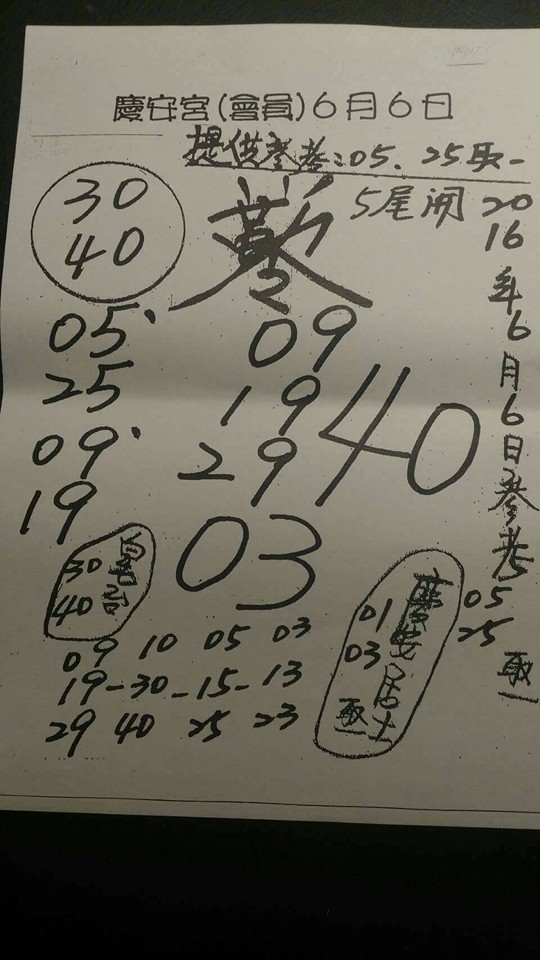 慶安宮(會員)6月6日
提供參考:05、25取一
5尾開
30
40
05
25
09
19
09
19
29
40
03
2016年6月6日參考
05
25
取一
30
40
09 10 05 03
19-30-15-13
29 40 25 23
慶安居士
01
03
取一